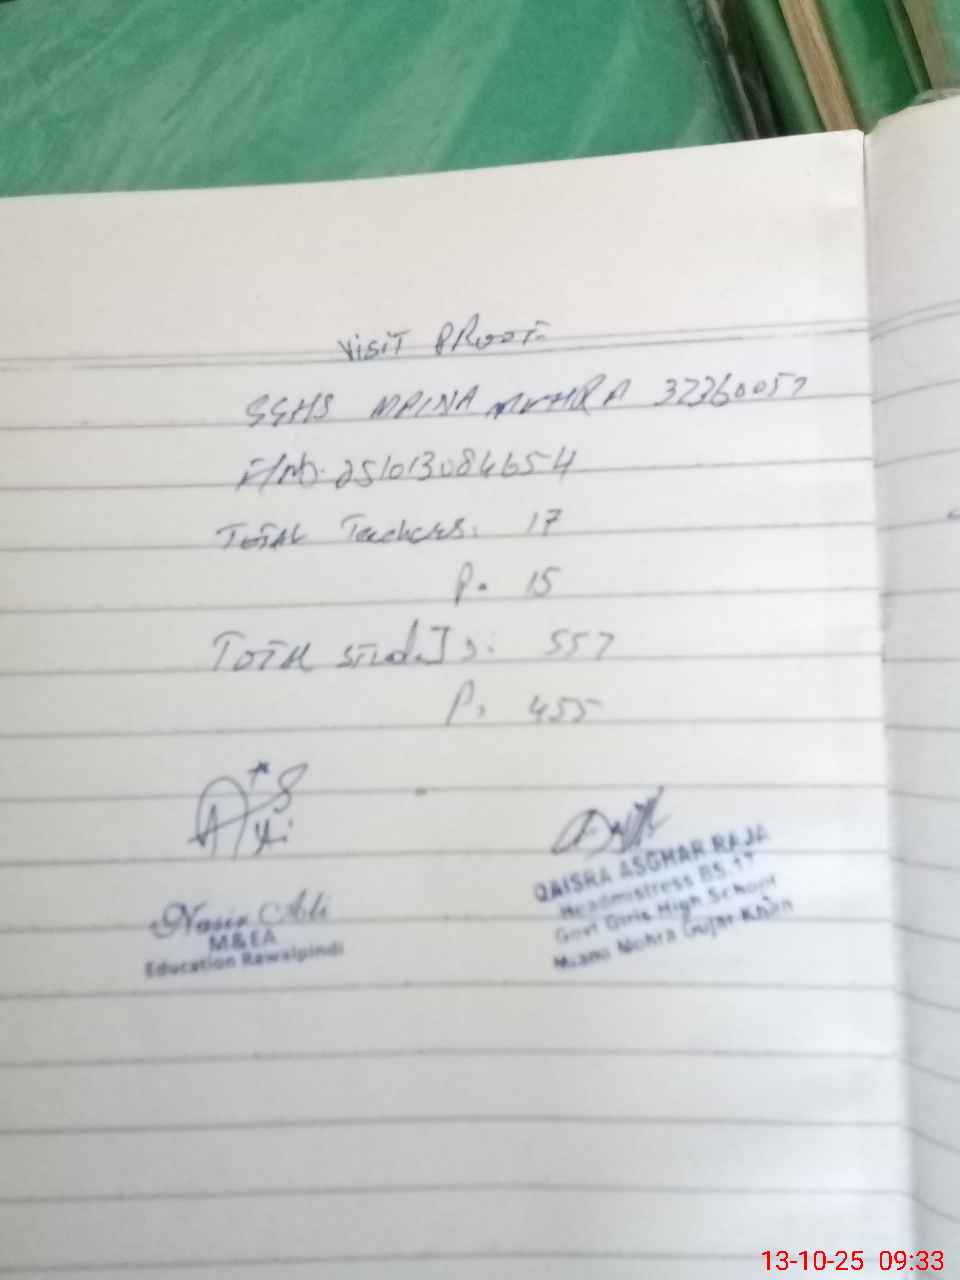 VISIT PROOF
GGHS MAINA MOHRA 37360057
F/No. 251013084654
TOTAL Teachers. 17
P. 15
TOTAL students. 557
P. 455
Nasir Ali
M&EA
Education Rawalpindi
QAISRA ASGHAR RAJA
Headmistress BS.17
Govt Girls High School
Mohra Gujar Khan
13-10-25 09:33